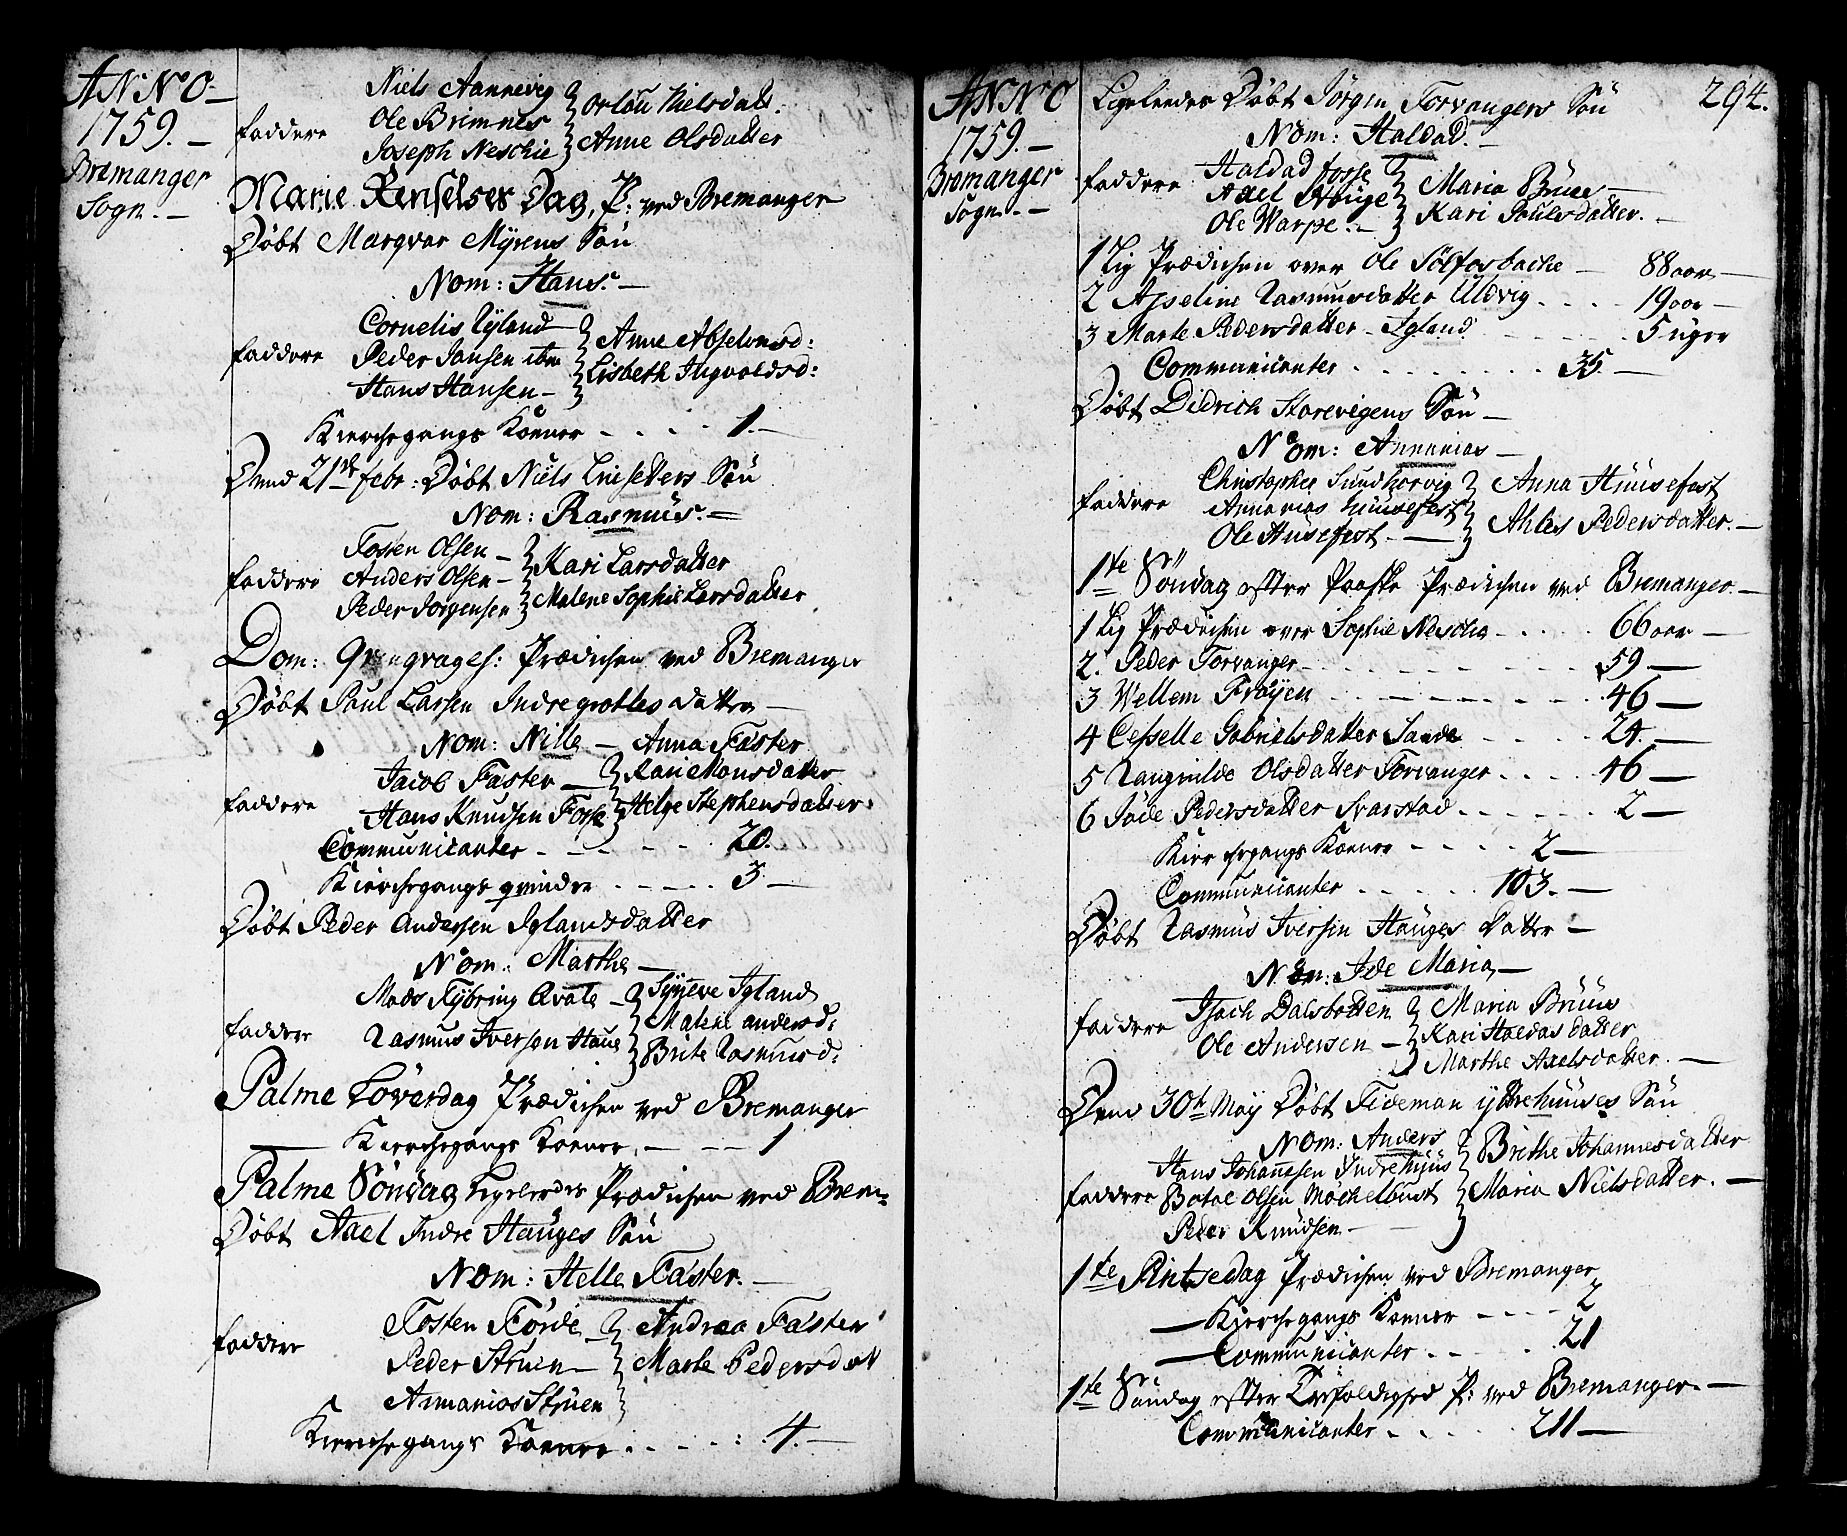 ANNO
1759.
Bremanger
Sogn.
Niels Aannevig
Ole Brimnes
Joseph Neschie
faddere
Orlau Nielsdatt.
Anne Olsdatter
Marie Renselses Dag, P: ved Bremanger
Døbt Margvar Myrens Søn
Nom: Hans.
Cornelis Ryland
faddere Peder Jansen ibm
Hans Hansen
Anne Abselonsd:
Lisbeth Ingvoldsd:
Kierchegangs Koener - - - - 1.
Dend 21de febr: Døbt Niels Liisetters Søn
Nom: Rasmus.
Tosten Olsen
faddere Anders Olsen
Peder Jorgensen
Kari Larsdatter
Malene Sophie Larsdatter
Dom: Prædichen ved Bremanger
Døbt Paul Larsen Indregrottes datter
Nom: Nille
Jacob Faster
faddere
Hans Knudsen Fosse
Anna Faster
Kari Monsdatter
Helge Stephensdatter
Communicanter - - - - - 20.
Kierchegangs qvinder - - - - - 3
Døbt Peder Andersen Iglandsdatter
Nom: Marthe
Mads Fybring Qvale
faddere Rasmus Iversen Haug
Synneve Igland
Malene andersd:
Brite Rasmusd:
Palme Løverdag Prædichen ved Bremanger
Kierchegangs Koener - - - 1
Palme Søndag Ligeledes Prædichen ved Brem
Døbt Axel Indre Hauges Søn
Nom: Helle Faster.
Tosten Førde
faddere Peder Struen
Armanios Struen
Andrea Faster
Marte Pedersdat
Kierchegangs Koener - - - - : 4.
ANNO
1759.
Bremanger
Sogn.
294.
Ligeleedes Døbt Jørgen Torvangers Søn
Nom: Haldad.
faddere Haldad fosse
Axel Houge
Ole Warpe.
Maria Bruun
Kari Paulsdatter.
1 Lig Prædichen over Ole Solfosbache - 88 aar
2 Apseline Rasmusdatter Uldvig - - - - 19 aar
3 Marte Pedersdatter Igland - - - - 5 uger
Communicanter - - - - - - - 35.
Døbt Didrich Storevigens Søn
Nom: Annanias
Christopher Sundhorvig
faddere Annanias Huusefest
Ole Husefest
Anna Huusefest
Ahles Pedersdatter.
1te Søndag efter Paaske Prædichen ved Bremanger.
1 Lig Prædichen over Sophie Neschø - - - 66 aar
2. Peder Torvanger - - - - - - 59
3 Wellem Frøyen - - - - - - 46
4 Cesselle Gabrielsdatter Sande - - - - 24.
5 Rangnilde Olsdatter Torvanger - - - - 46
6 Jøde Pedersdatter Svarstad - - - - - 2
Kierchegangs Koener - - - - 2
Communicanter - - - - - 103.
Døbt Rasmus Iversen Hauges Datter
Nom: Ide Maria
faddere Isach Dalsbotten
Ole Andersen
Maria Bruun
Kari Haldasdatter
Marthe Axelsdatter.
Dend 30te May Døbt Tideman ytrehuuses Søn
Nom: Anders
Hans Johannsen Indrehuus
faddere Botol Olsen Møchelbust
Peder Knudsen
Brithe Johannesdatter
Maria Nielsdatter.
1te Pintsedag Prædichen ved Bremanger
Kierchegangs Koener - - - - 2
Communicanter - - - - - 21
1te Søndag efter Trefoldighed P: ved Bremanger.
Communicanter - - - - - 211